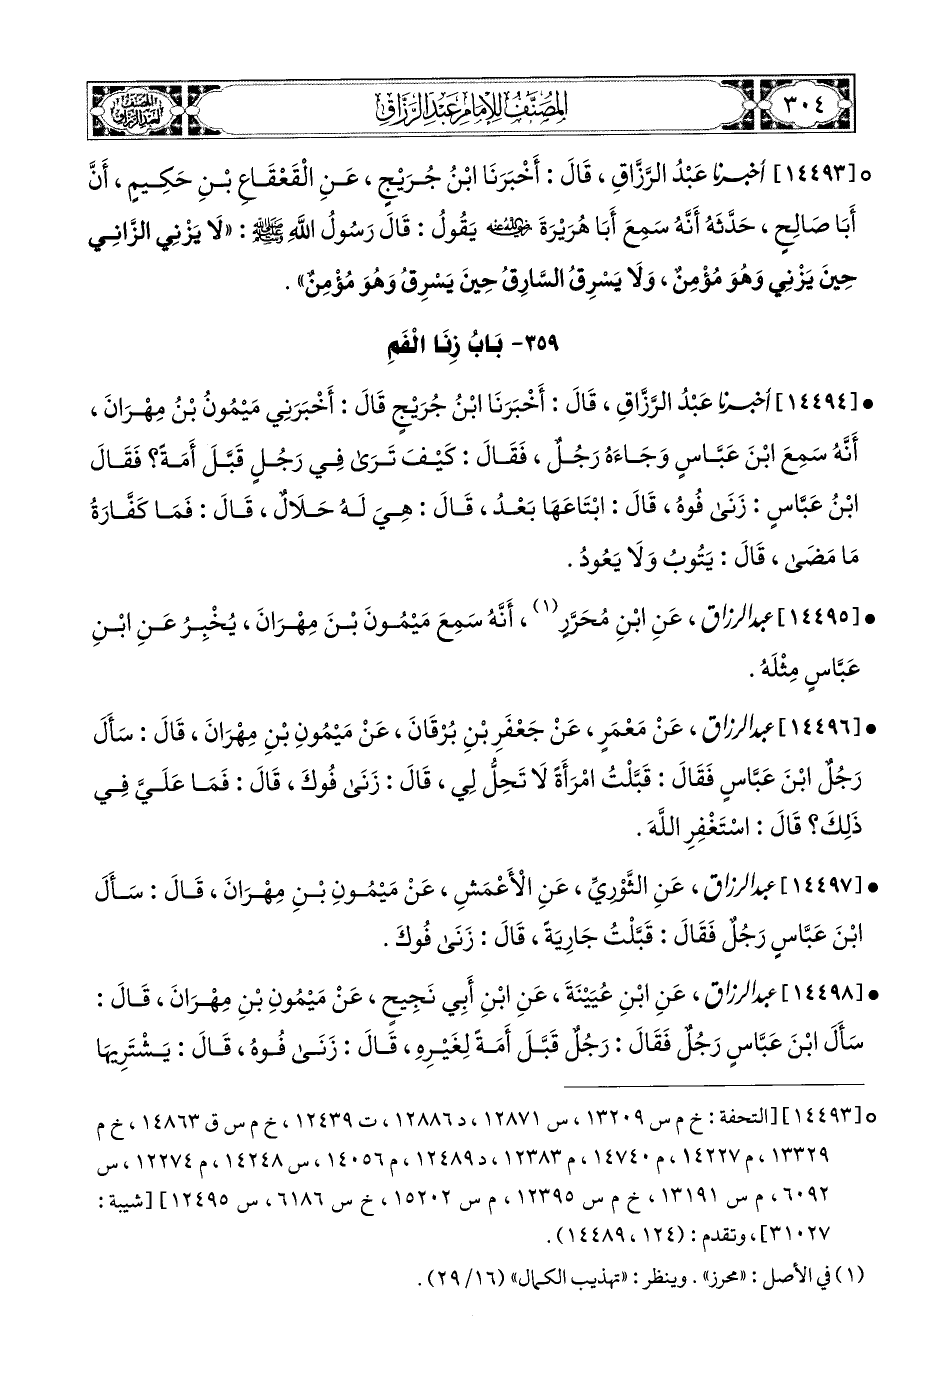 ٣٠٤
المُصَنَّفُ لِلإِمَامِ عَبْدِ الرَّزَّاقِ
○ [١٤٤٩٣] أخبرنا عَبْدُ الرَّزَّاقِ ، قَالَ : أَخْبَرَنَا ابْنُ جُرَيْجٍ ، عَنِ الْقَعْقَاعِ بْنِ حَكِيمٍ ، أَنَّ
أَبَا صَالِحٍ ، حَدَّثَهُ أَنَّهُ سَمِعَ أَبَا هُرَيْرَةَ رضي الله عنه يَقُولُ : قَالَ رَسُولُ اللَّهِ ﷺ : «لَا يَزْنِي الزَّانِي
حِينَ يَزْنِي وَهُوَ مُؤْمِنٌ ، وَلَا يَسْرِقُ السَّارِقُ حِينَ يَسْرِقُ وَهُوَ مُؤْمِنٌ» .
٣٥٩- بَابُ زِنَا الْفَمِ
• [١٤٤٩٤] أخبرنا عَبْدُ الرَّزَّاقِ ، قَالَ : أَخْبَرَنَا ابْنُ جُرَيْجٍ قَالَ : أَخْبَرَنِي مَيْمُونُ بْنُ مِهْرَانَ ،
أَنَّهُ سَمِعَ ابْنَ عَبَّاسٍ وَجَاءَهُ رَجُلٌ ، فَقَالَ : كَيْفَ تَرَىٰ فِي رَجُلٍ قَبَّلَ أَمَةً؟ فَقَالَ
ابْنُ عَبَّاسٍ : زَنَىٰ فُوهُ ، قَالَ : ابْتَاعَهَا بَعْدُ ، قَالَ : هِيَ لَهُ حَلَالٌ ، قَالَ : فَمَا كَفَّارَةُ
مَا مَضَىٰ ، قَالَ : يَتُوبُ وَلَا يَعُودُ .
• [١٤٤٩٥] عبد الرزاق ، عَنِ ابْنِ مُحَرَّرٍ(١) ، أَنَّهُ سَمِعَ مَيْمُونَ بْنَ مِهْرَانَ ، يُخْبِرُ عَنِ ابْنِ
عَبَّاسٍ مِثْلَهُ .
• [١٤٤٩٦] عبد الرزاق ، عَنْ مَعْمَرٍ ، عَنْ جَعْفَرِ بْنِ بُرْقَانَ ، عَنْ مَيْمُونِ بْنِ مِهْرَانَ ، قَالَ : سَأَلَ
رَجُلٌ ابْنَ عَبَّاسٍ فَقَالَ : قَبَّلْتُ امْرَأَةً لَا تَحِلُّ لِي ، قَالَ : زَنَىٰ فُوكَ ، قَالَ : فَمَا عَلَيَّ فِي
ذَلِكَ؟ قَالَ : اسْتَغْفِرِ اللَّهَ .
• [١٤٤٩٧] عبد الرزاق ، عَنِ الثَّوْرِيِّ ، عَنِ الْأَعْمَشِ ، عَنْ مَيْمُونِ بْنِ مِهْرَانَ ، قَالَ : سَأَلَ
ابْنَ عَبَّاسٍ رَجُلٌ فَقَالَ : قَبَّلْتُ جَارِيَةً ، قَالَ : زَنَىٰ فُوكَ .
• [١٤٤٩٨] عبد الرزاق ، عَنِ ابْنِ عُيَيْنَةَ ، عَنِ ابْنِ أَبِي نَجِيحٍ ، عَنْ مَيْمُونِ بْنِ مِهْرَانَ ، قَالَ :
سَأَلَ ابْنَ عَبَّاسٍ رَجُلٌ فَقَالَ : رَجُلٌ قَبَّلَ أَمَةً لِغَيْرِهِ ، قَالَ : زَنَىٰ فُوهُ ، قَالَ : يَشْتَرِيهَا
○ [١٤٤٩٣] [التحفة : خ م س ١٣٢٠٩ ، س ١٢٨٧١ ، د ١٢٨٨٦ ، ت ١٢٤٣٩ ، خ م س ق ١٤٨٦٣ ، خ م
١٣٣٢٩ ، م ١٤٢٢٧ ، م ١٤٧٤٠ ، م ١٢٣٨٣ ، د ١٢٤٨٩ ، م ١٤٠٥٦ ، س ١٤٢٤٨ ، م ١٢٢٧٤ ، س
٦٠٩٢ ، م س ١٣١٩١ ، خ م س ١٢٣٩٥ ، م س ١٥٢٠٢ ، خ س ٦١٨٦ ، س ١٢٤٩٥] [شيبة :
٣١٠٢٧] ، وتقدم : (١٢٤ ، ١٤٤٨٩) .
(١) في الأصل : «محرز» . وينظر : «تهذيب الكمال» (١٦/ ٢٩) .